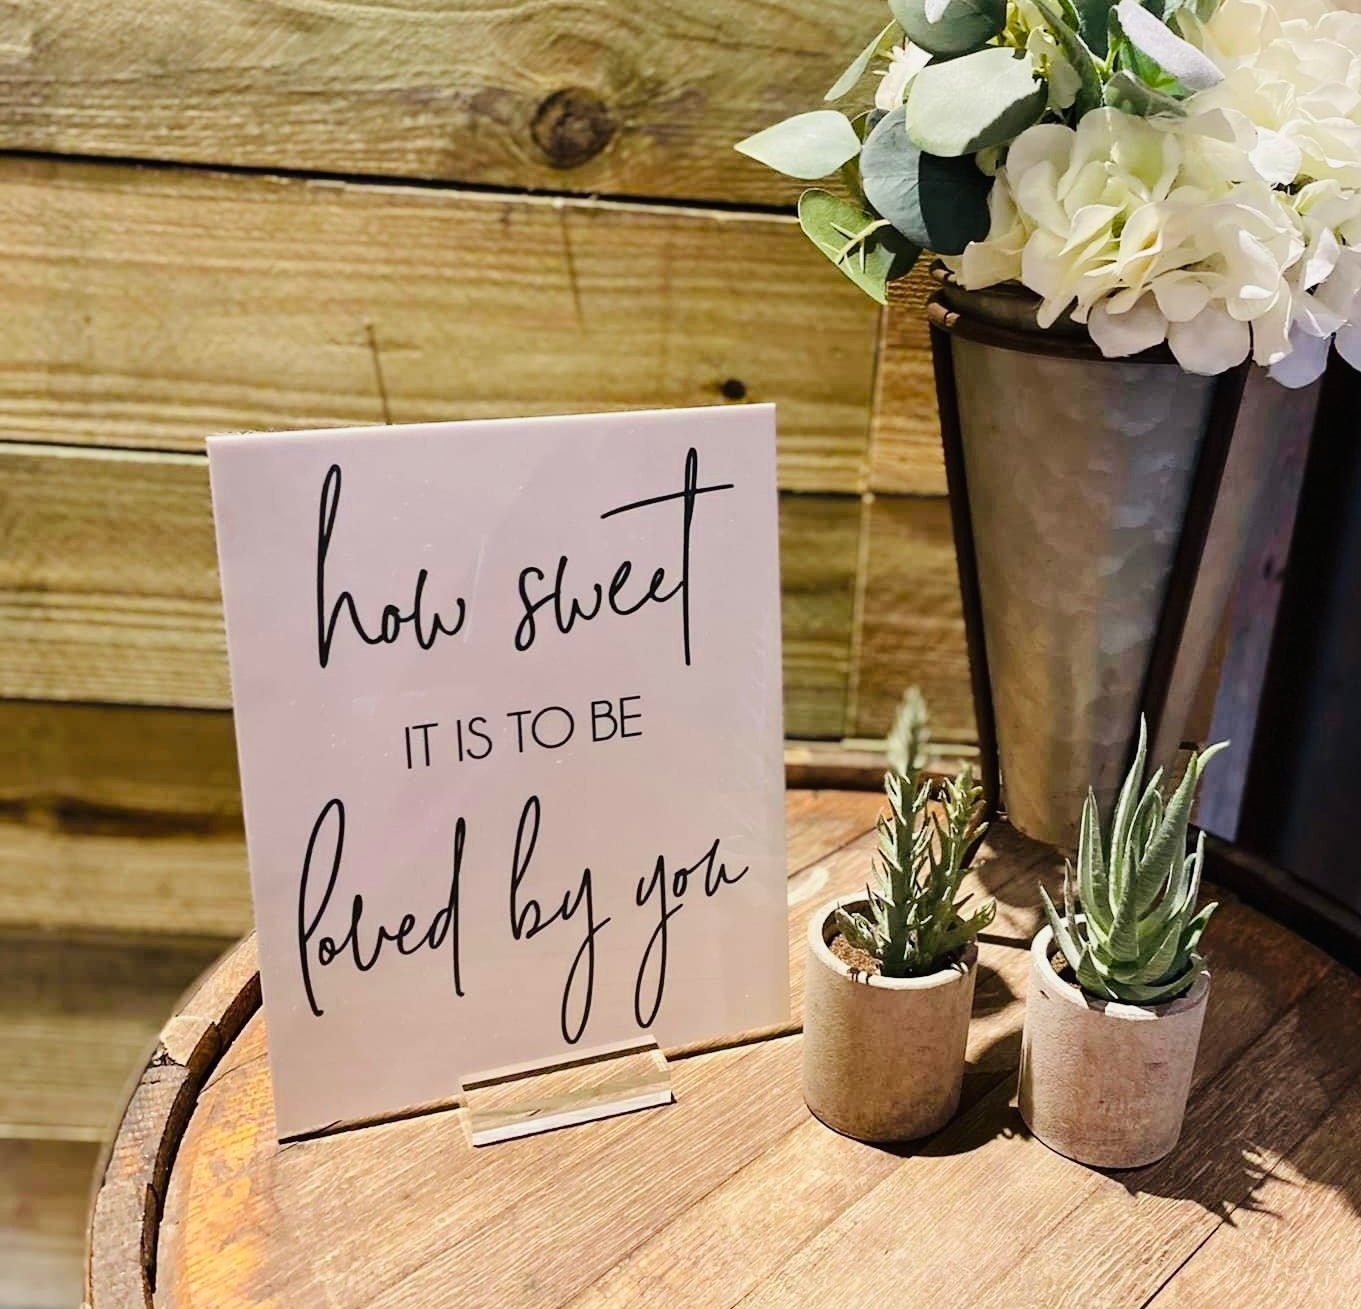 how sweet
IT IS TO BE
loved by you